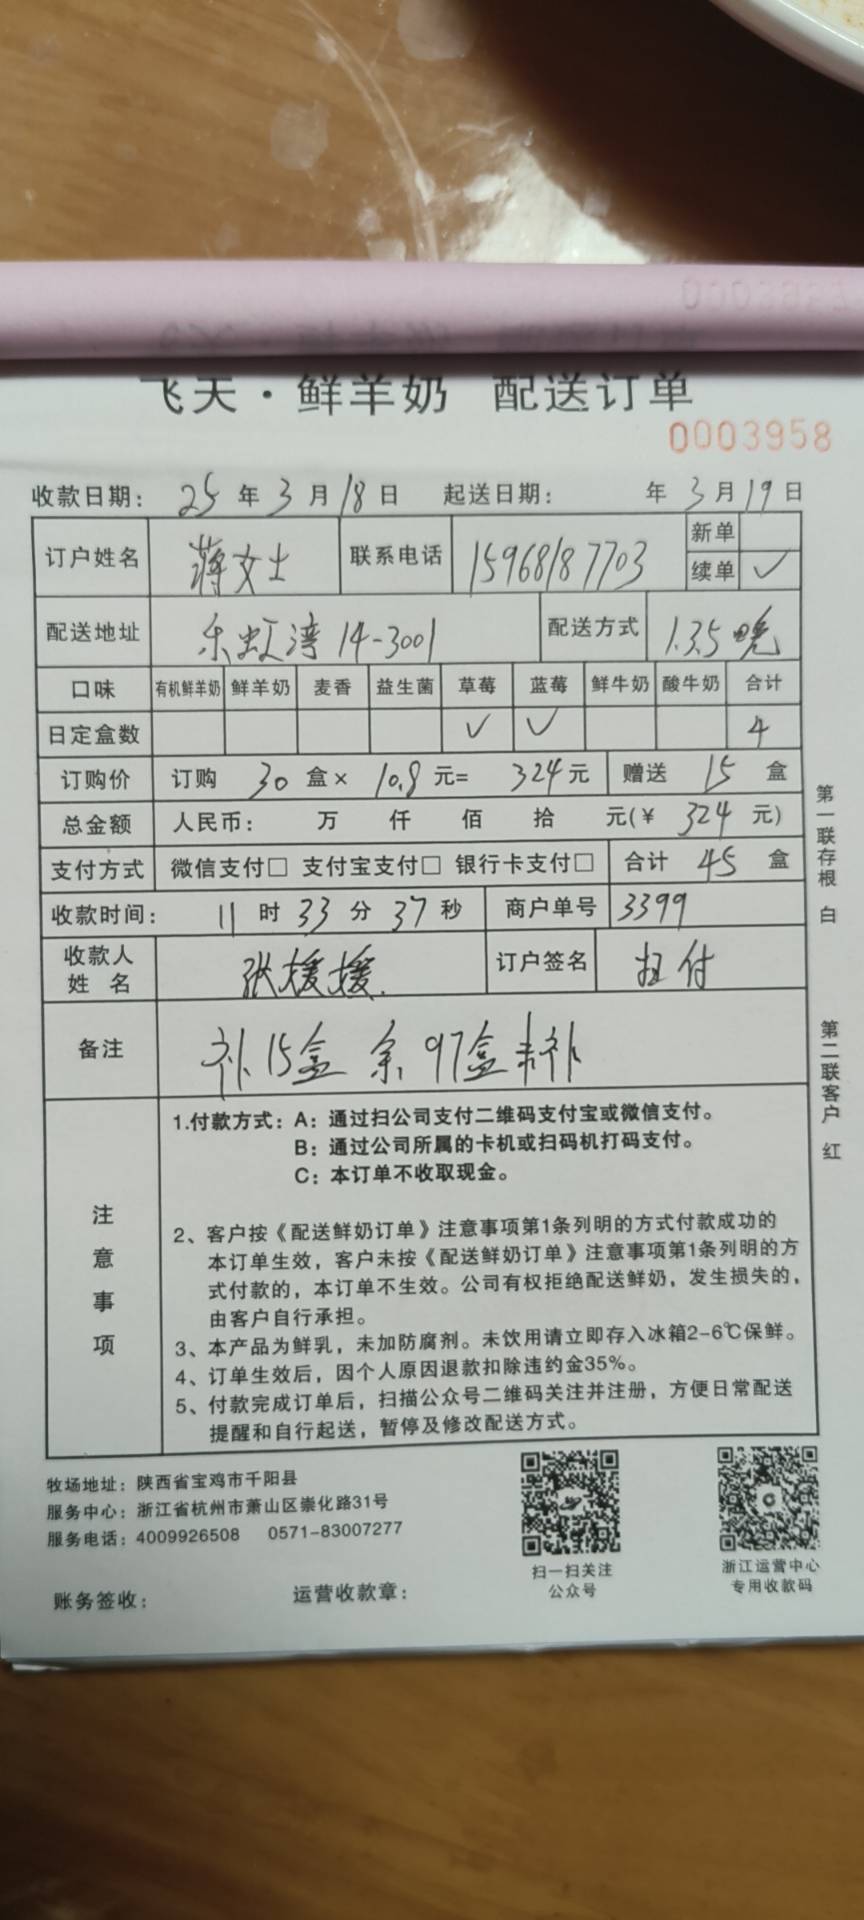 飞天·鲜羊奶 配送订单
0003958
收款日期： 25 年 3 月 18 日 起送日期： 年 3 月 19 日
订户姓名 蒋女士 联系电话 15968187703 新单
续单 ✓
配送地址 乐虹湾 14-3001 配送方式 1.3.5 晚
口味 有机鲜羊奶 鲜羊奶 麦香 益生菌 草莓 蓝莓 鲜牛奶 酸牛奶 合计
日定盒数 ✓ ✓ 4
订购价 订购 30 盒× 10.8 元= 324 元 赠送 15 盒
总金额 人民币： 万 仟 佰 拾 元(¥ 324 元)
支付方式 微信支付□ 支付宝支付□ 银行卡支付□ 合计 45 盒
收款时间： 11 时 33 分 37 秒 商户单号 3399
收款人姓名 张媛媛 订户签名 扫付
备注 补15盒 余97盒未补
注意事项
1.付款方式：A：通过扫公司支付二维码支付宝或微信支付。
B：通过公司所属的卡机或扫码机打码支付。
C：本订单不收取现金。
2、客户按《配送鲜奶订单》注意事项第1条列明的方式付款成功的
本订单生效，客户未按《配送鲜奶订单》注意事项第1条列明的方
式付款的，本订单不生效。公司有权拒绝配送鲜奶，发生损失的，
由客户自行承担。
3、本产品为鲜乳，未加防腐剂。未饮用请立即存入冰箱2-6℃保鲜。
4、订单生效后，因个人原因退款扣除违约金35%。
5、付款完成订单后，扫描公众号二维码关注并注册，方便日常配送
提醒和自行起送，暂停及修改配送方式。
第一联存根 白
第二联客户 红
牧场地址：陕西省宝鸡市千阳县
服务中心：浙江省杭州市萧山区崇化路31号
服务电话：4009926508 0571-83007277
扫一扫关注
公众号
浙江运营中心
专用收款码
账务签收： 运营收款章：